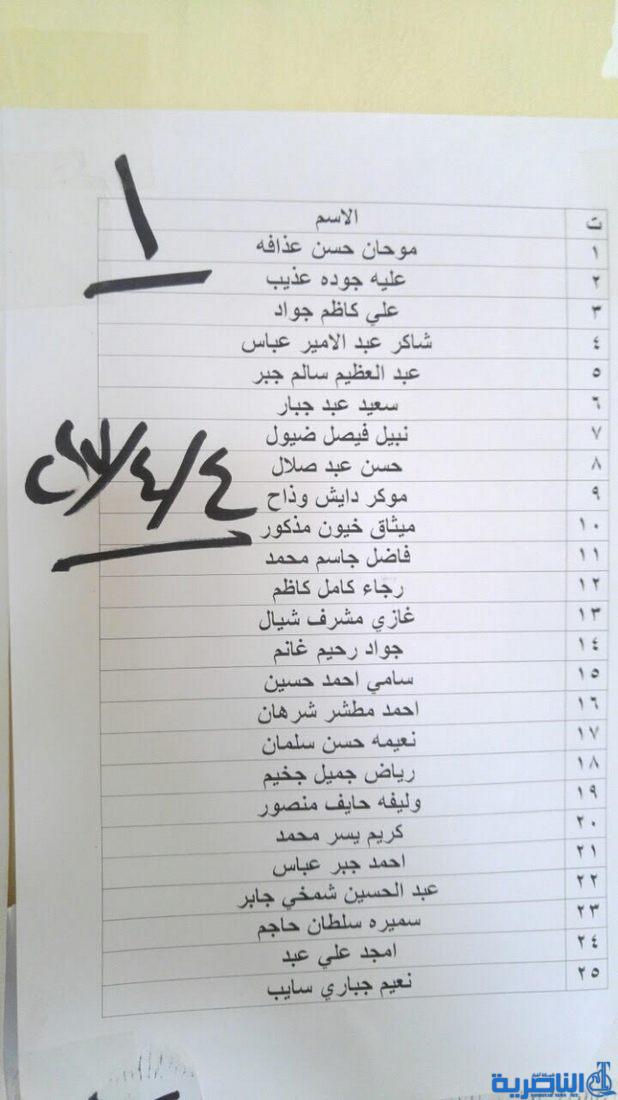 ١
ت الاسم
١ موحان حسن عذافه
٢ عليه جوده عذيب
٣ علي كاظم جواد
٤ شاكر عبد الامير عباس
٥ عبد العظيم سالم جبر
٦ سعيد عبد جبار
٧ نبيل فيصل ضيول
٨ حسن عبد صلال
٩ موكر دايش وذاح
١٠ ميثاق خيون مذكور
١١ فاضل جاسم محمد
١٢ رجاء كامل كاظم
١٣ غازي مشرف شيال
١٤ جواد رحيم غانم
١٥ سامي احمد حسين
١٦ احمد مطشر شرهان
١٧ نعيمه حسن سلمان
١٨ رياض جميل جخيم
١٩ وليفه حايف منصور
٢٠ كريم يسر محمد
٢١ احمد جبر عباس
٢٢ عبد الحسين شمخي جابر
٢٣ سميره سلطان حاجم
٢٤ امجد علي عبد
٢٥ نعيم جباري سايب
٤/٤/
الناصرية